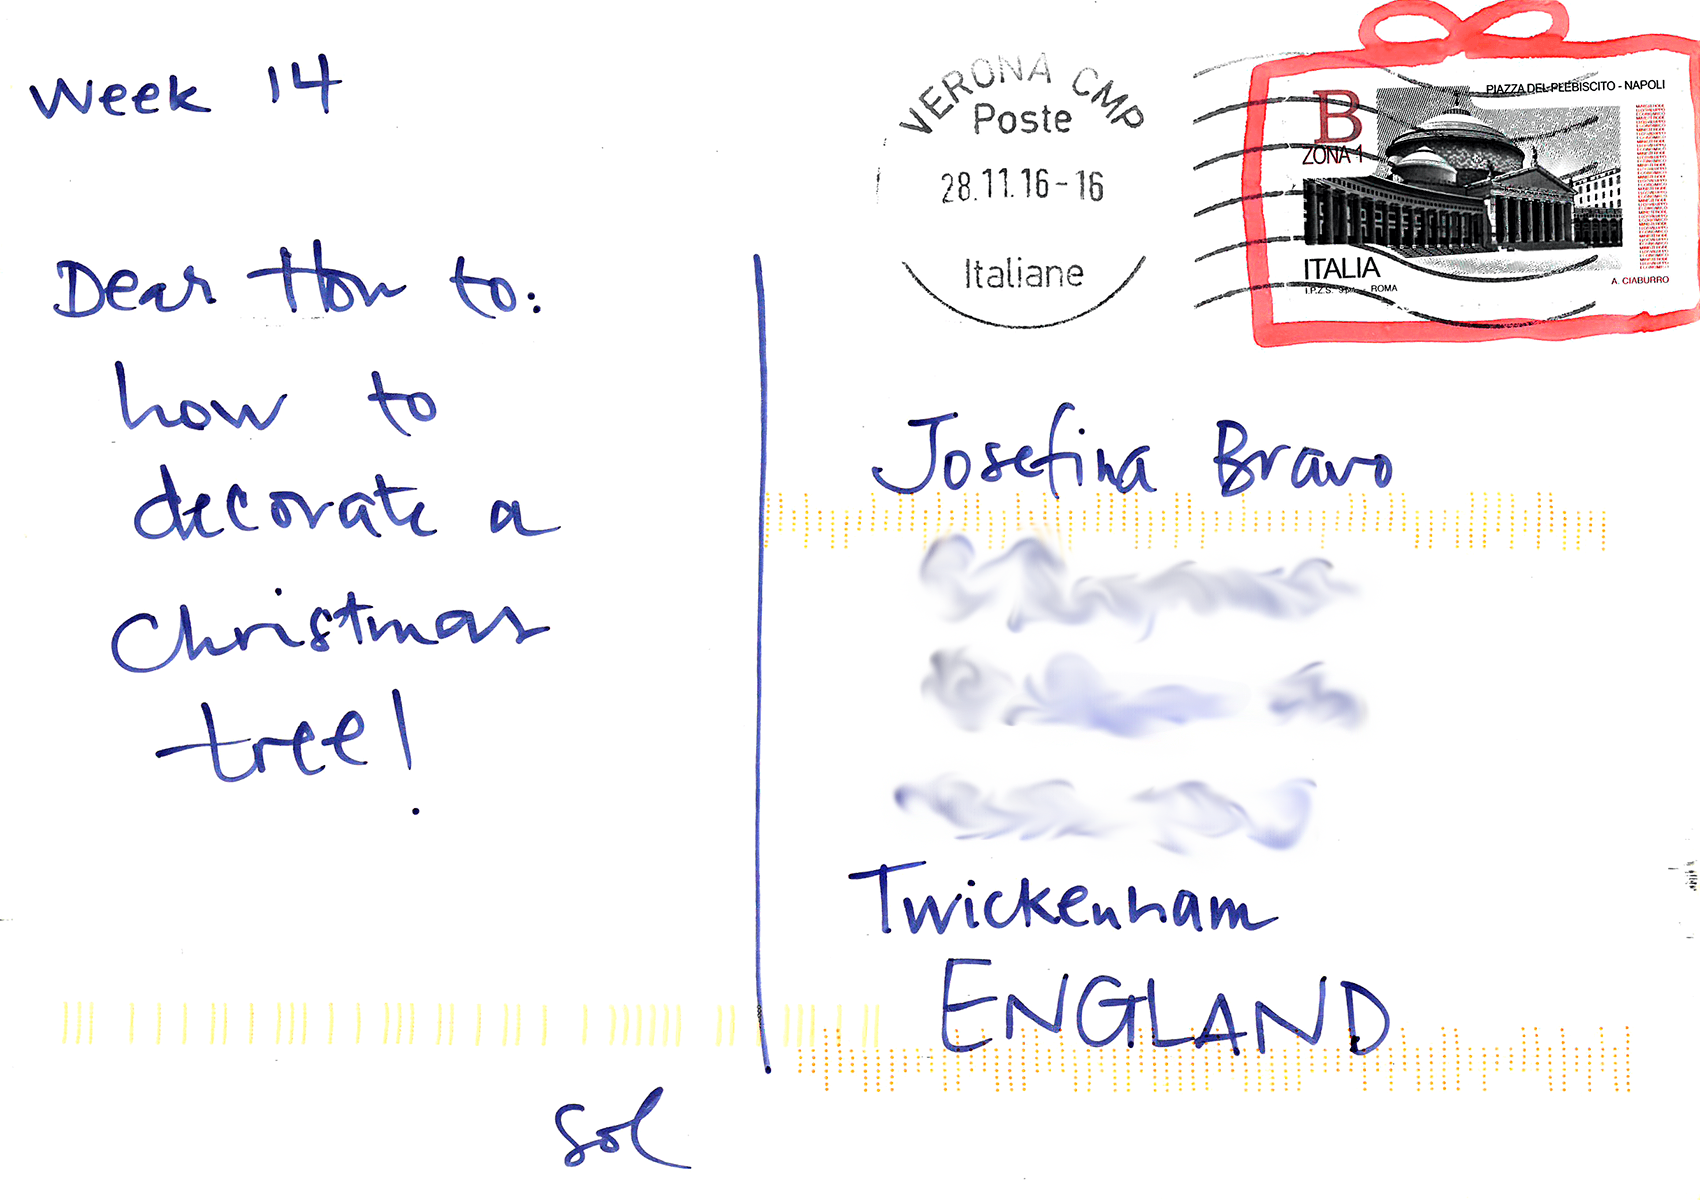 Week 14
Dear How to:
how to
decorate a
Christmas
tree!
sol
VERONA CMP
Poste
28.11.16-16
Italiane
PIAZZA DEL PLEBISCITO - NAPOLI
B
ZONA 1
ITALIA
I.P.Z.S. ROMA
A. CIABURRO
Josefina Bravo
Twickenham
ENGLAND